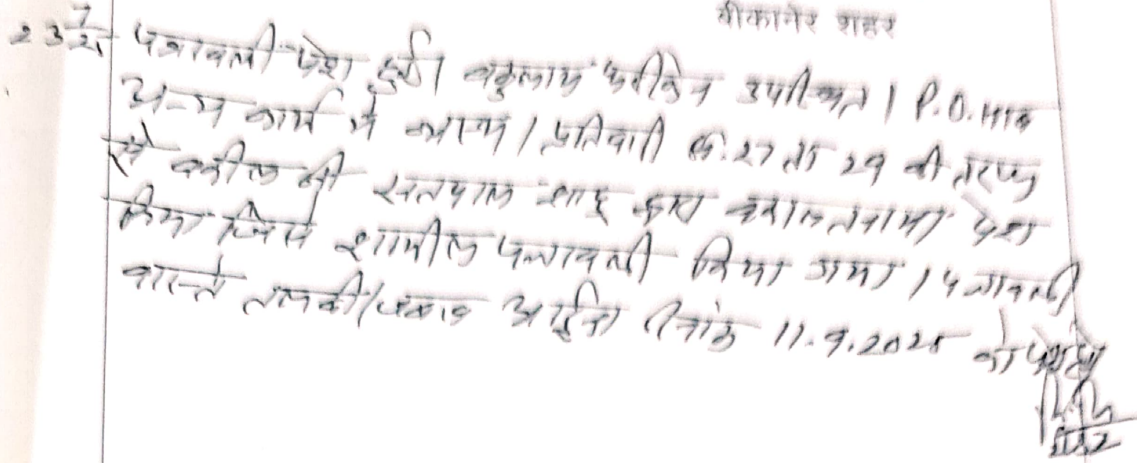 बीकानेर शहर
23/7/25 पत्रावली पेश हुई। वकुलाय फरीकेन उपस्थित। P.O. साब
अन्य कार्य में व्यस्त। प्रतिवादी सं. 27 ता 29 की तरफ
से वकील श्री सतपाल साहू द्वारा वकालतनामा पेश
किया जिसे शामील पत्रावली किया गया। पत्रावली
वास्ते तलबी/जवाब आईंदा दिनांक 11.9.2025 को पेश हो